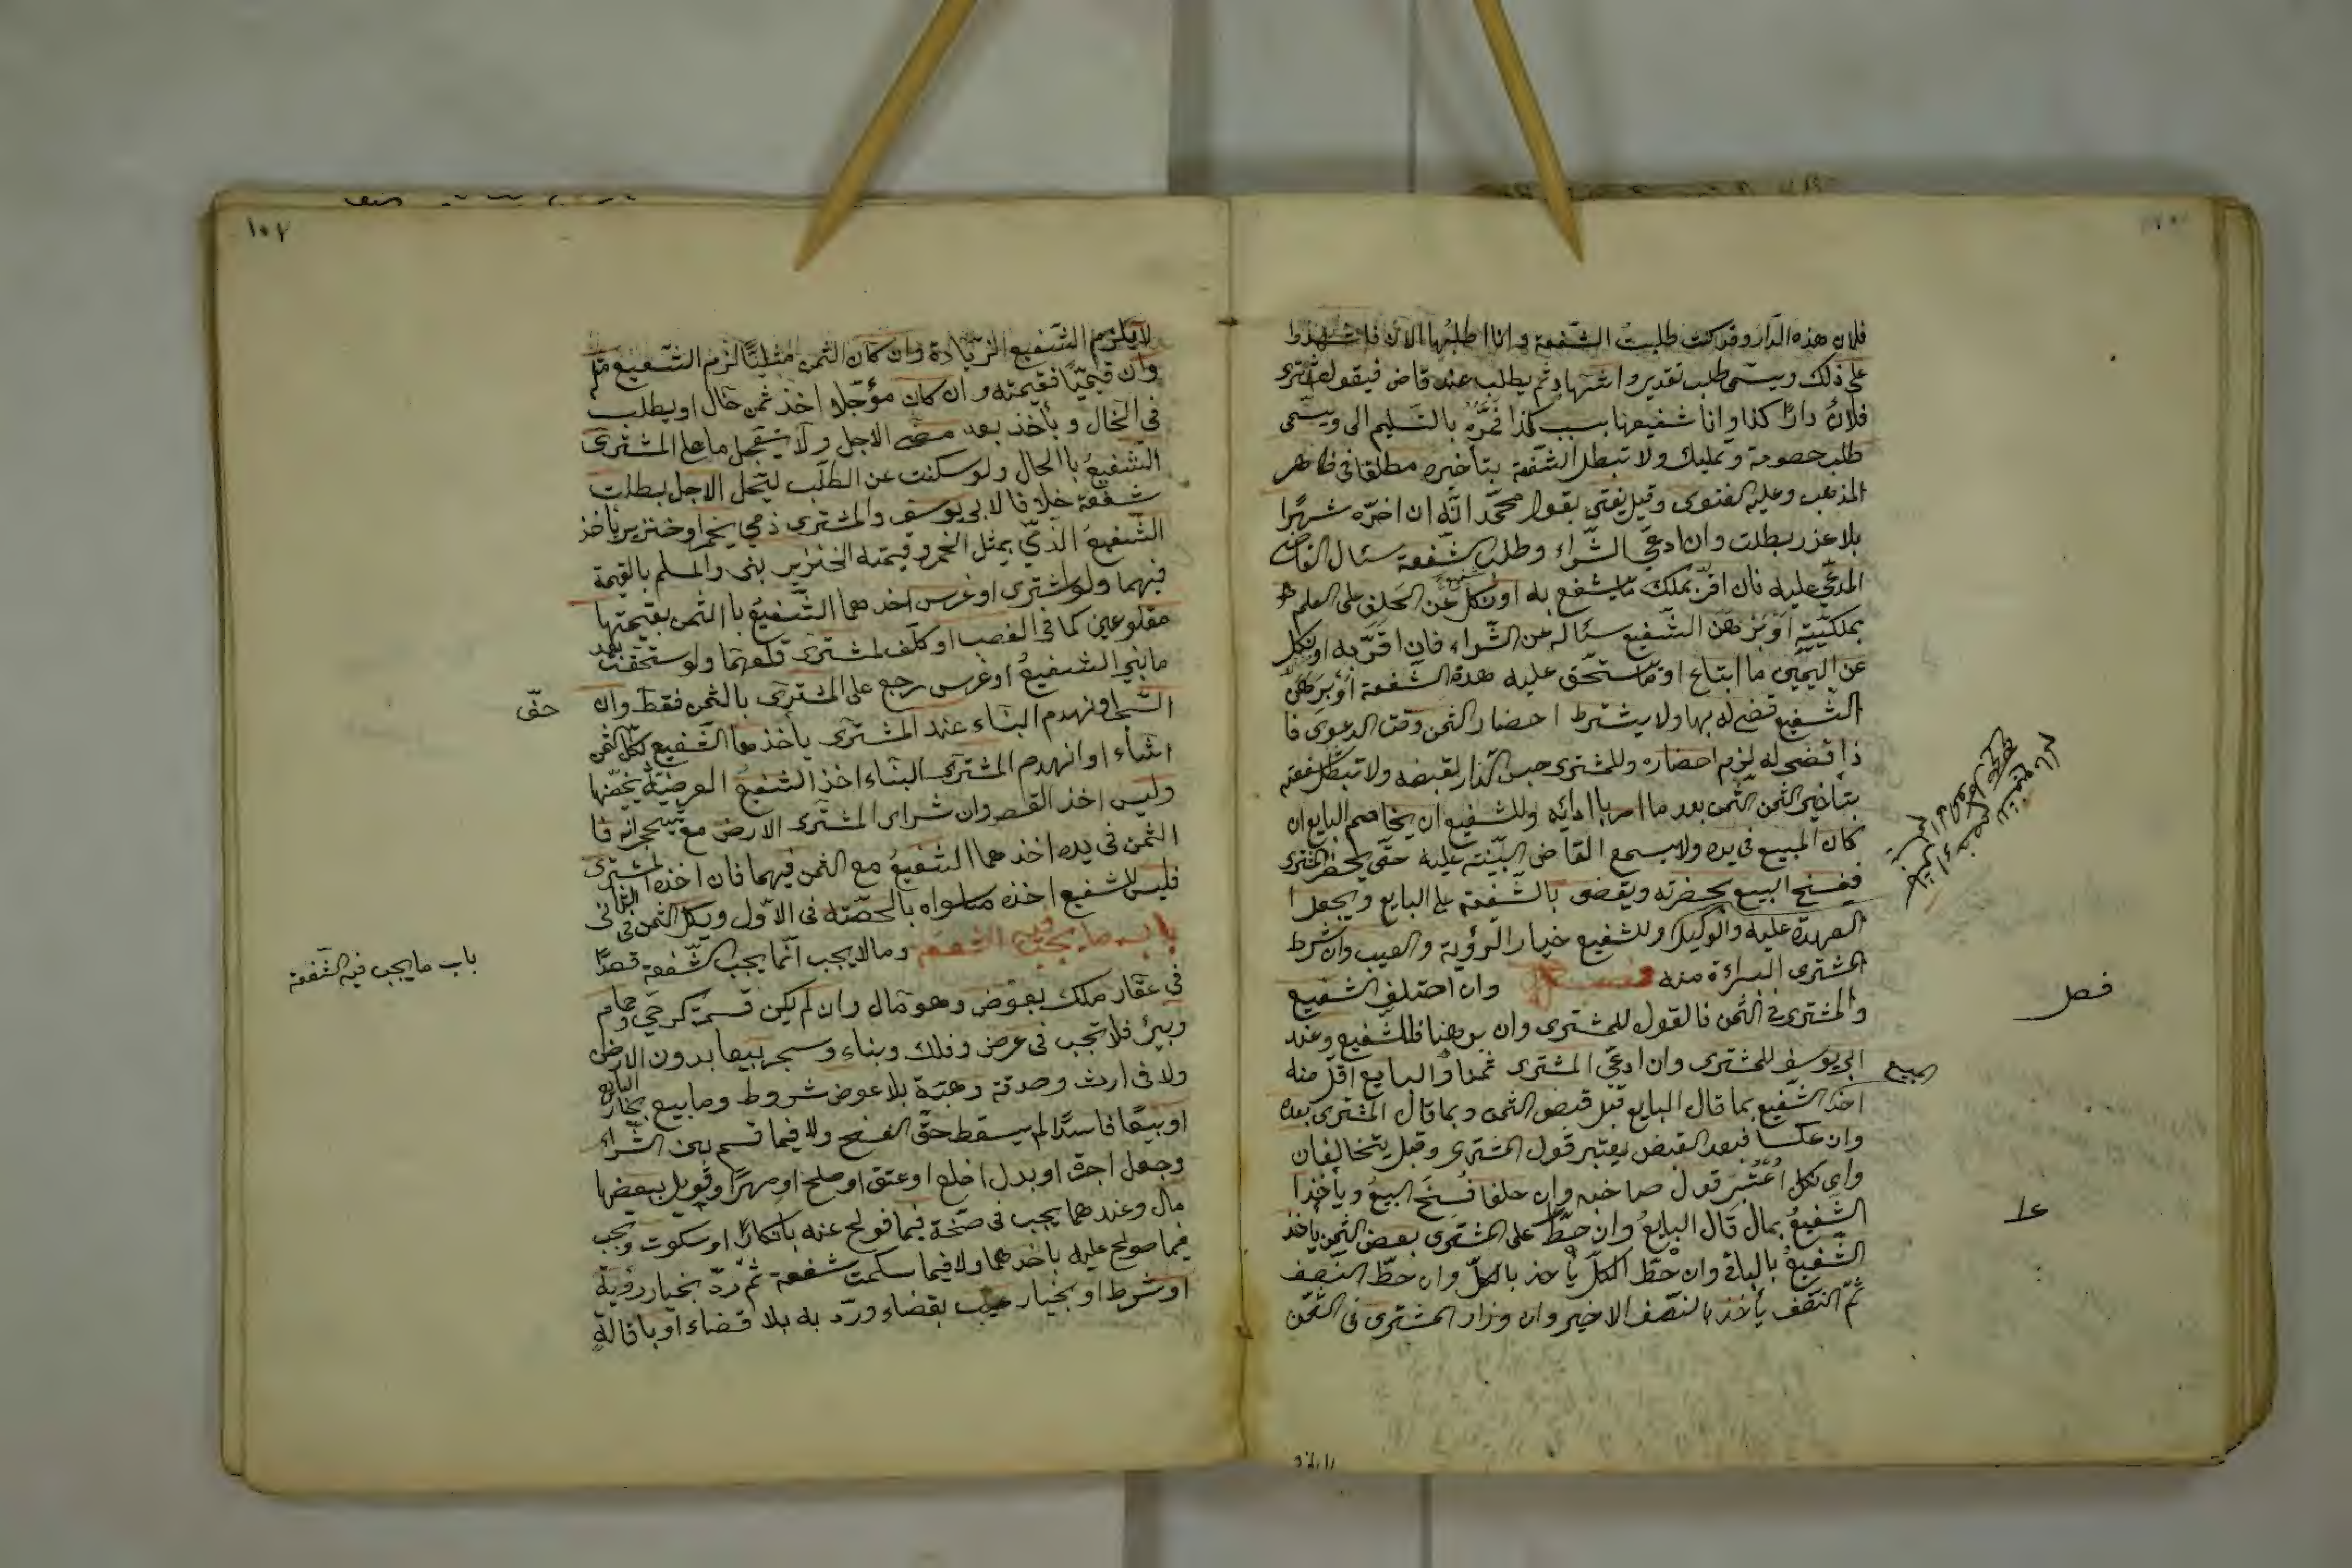 فلان هذه الدار وقد كنت طلبت الشفعة وانا اطلبها الآن فاشهدوا
على ذلك ويسمى طلب تقدير واشهاد ثم يطلب عند قاض فيقول اشترى
فلان دارًا كذا وانا شفيعها بسبب كذا فمره بالتسليم الى ويسمى
طلب خصومة وتمليك ولا تبطل الشفعة بتأخيره مطلقا فى ظاهر
المذهب وعليه الفتوى وقيل يفتى بقول محمد انه ان اخره شهرًا
بلا عذر بطلت وان ادعى الشراء وطلب شفعة سئال القاضى
المدعى عليه فان اقر بملك ما يشفع به او نكل عن الحلف على العلم
بملكيته او برهن الشفيع سئاله عن الشراء فان اقر به او نكل
عن اليمين ما ابتاع او ما ستحق عليه هذه الشفعة او برهن
الشفيع قضى له بها ولا يشترط احضار الثمن وقت الدعوى فا
ذا قضى له لزم احضاره وللمشترى حبس الدار لقبضه ولا تبطل شفعته
بتأخير الثمن الثمن بعد ما امر بادائه وللشفيع ان يخاصم البايع ان
كان المبيع فى يده ولا يسمع القاضى البينة عليه حتى يحضر المشترى
فيفسخ البيع بحضرته ويقضى بالشفعة على البايع ويجعل
العهدة عليه والوكيل وللشفيع خيار الرؤية والعيب وان شرط
المشترى البراءة منه فصل وان اختلف الشفيع
والمشترى فى الثمن فالقول للمشترى وان برهنا فللشفيع وعند
ابى يوسف للمشترى وان ادعى المشترى ثمنا والبايع اقل منه
اخذ الشفيع بما قال البايع قبل قبض الثمن وبما قال المشترى بعده
وان عكسا فبعد القبض يعتبر قول المشترى وقبل يتخالفان
واى نكل اعتبر قول صاحبه وان حلفا فسخ البيع ويأخذ
الشفيع بمال قال البايع وان حط على المشترى بعض الثمن يأخذ
الشفيع بالباقى وان حط الكل يأخذ بالكل وان حط النصف
ثم النصف يأخذ بالنصف الاخير وان وزاد المشترى فى الثمن
فصل
المبيع
على
١٠٢
لا يلزم الشفيع الزيادة وان كان الثمن مثليًا لزم الشفيع مثله
وان قيميًا فقيمته وان كان مؤجلا اخذ ثمن حال او يطلب
فى الحال ويأخذ بعد مضى الاجل ولا يتعجل ما على المشترى
الشفيع باالحال ولو سكنت عن الطلب ليتحل الاجل بطلت
شفعة خلافا لابى يوسف والمشترى ذمى بخمر او خنزير يأخذ
الشفيع الذمى بمثل الخمر وقيمته الخنزير بنى والمسلم بالقيمة
فيهما ولو اشترى او غرس اخذهما الشفيع باالثمن بقيمتها
مقلوعين كما فى الغصب او كلف لمشترى قلعهما ولو ستحقت بعد
ما بنى الشفيع او غرس رجع على المشترى بالثمن فقط وان
الشجر او نهدم البناء عند المشترى يأخذها الشفيع بكل الثمن
انشاء او انهدم المشترى البناء اخذ الشفيع العرضة بحصتها
وليس اخذ النقص وان شراى المشترى الارض مع شجر فا
الثمن فى يده اخذهما الشفيع مع الثمن فيهما فان اخذه المشترى
فليس للشفيع اخذه ماسواه بالحصته فى الاول وبكل الثمن فى الثانى
باب ما يجب فيه الشفعة وما لا يجب انما يجب شفعة قصدًا
فى عقار ملك بعوض وهو مال وان لم يكن قسمته كرحى وحمام
وبئر فلا تجب فى عرض وفلك وبناء وسجر بيعا بدون الارض
ولا فى ارث وصدقة وهبة بلا عوض شروط وما بيع بخيار البايع
او بيعًا فاسدًا لم يسقط حق الفسخ ولا فيما قسم بين الشراء
وجعل اجرة او بدل اخلع او عتق او صلح او مهرًا وقوبل ببعضها
مال وعندهما يجب فى حصة فيما فولح عنه بانكارًا او سكوت ويجب
فيما صولح عليه باخدهما ولا فيما سلمت شفعة ثم رد بخيار رؤية
او شرط او بخيار عيب بقضاء ورد به بلا قضاء او باقالة
حتى
باب ما يجب فيه الشفعة